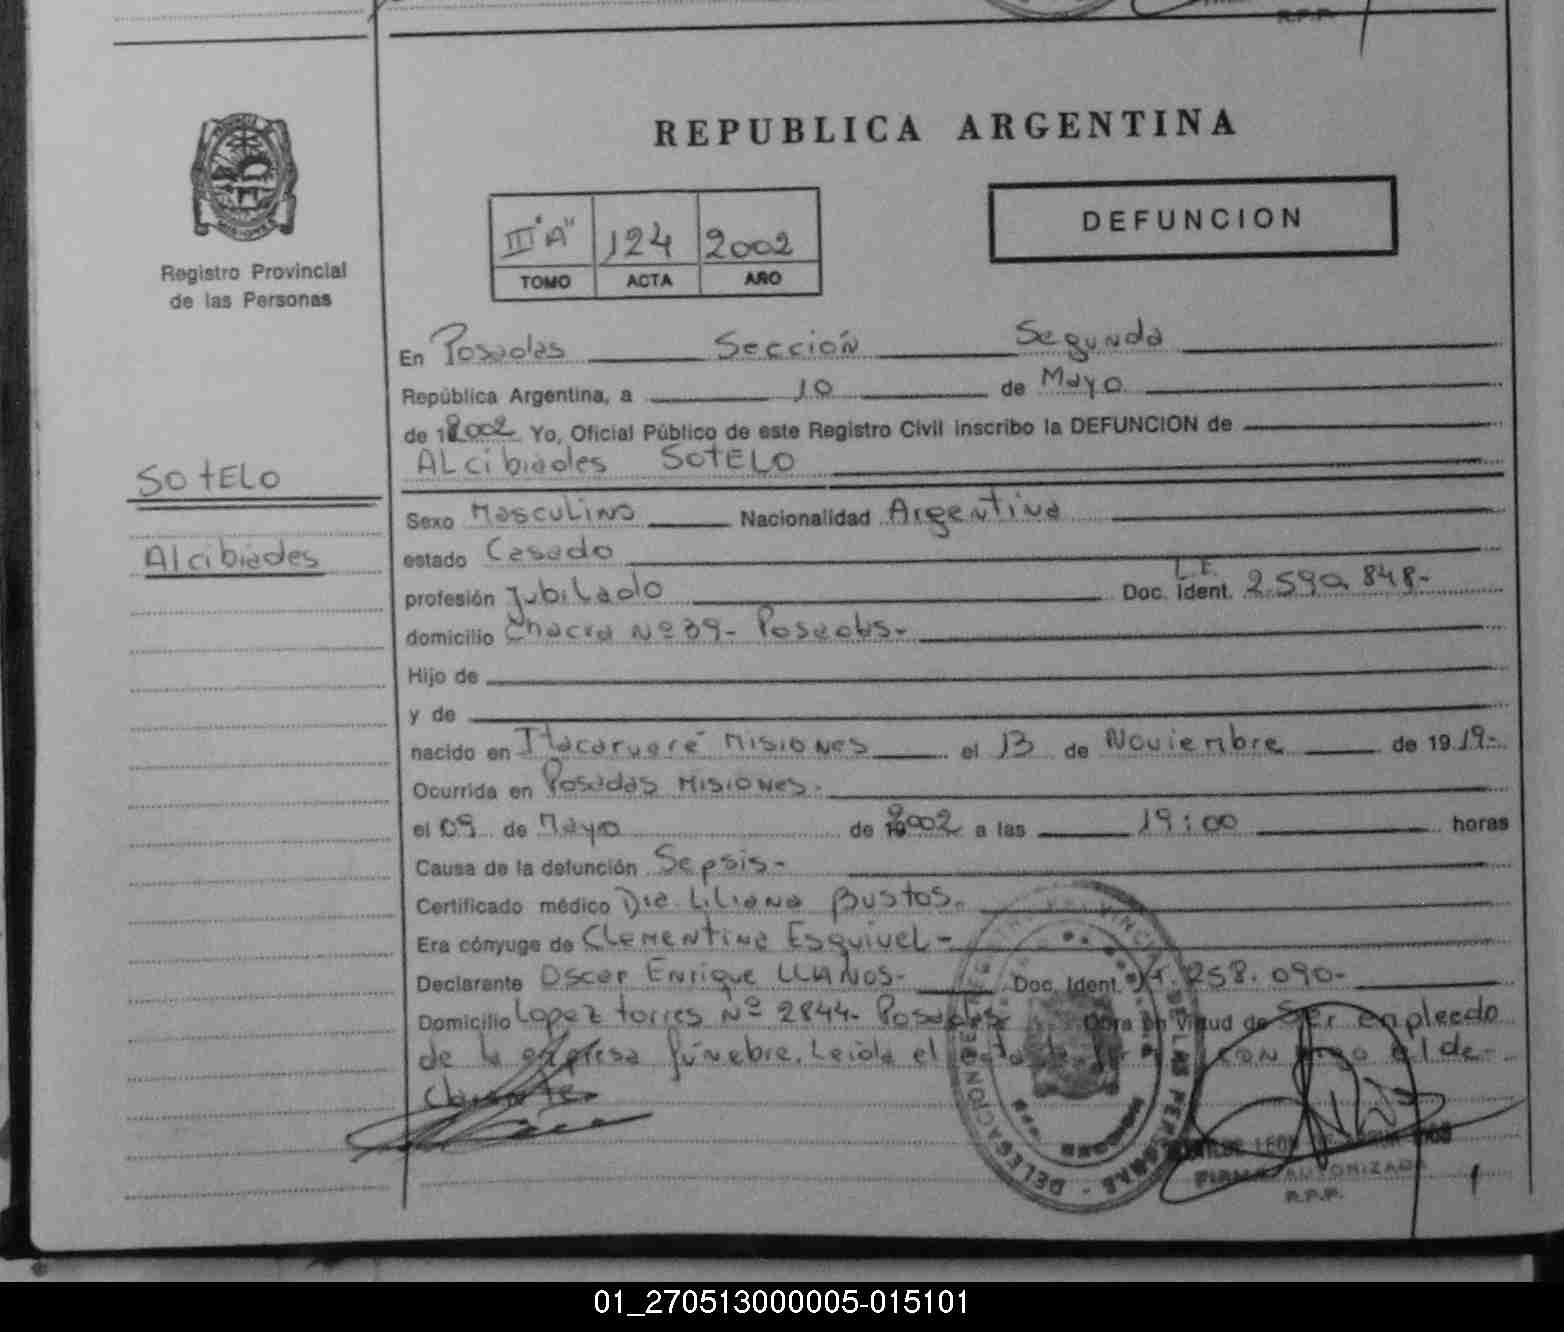 R.P.P.
REPUBLICA ARGENTINA
III "A" 124 2002
TOMO ACTA AÑO
DEFUNCION
Registro Provincial
de las Personas
En Posadas Sección Segunda
República Argentina, a 10 de Mayo
de 2002 Yo, Oficial Público de este Registro Civil inscribo la DEFUNCION de
ALcibiades SOtELO
SOtELO
Alcibiades
Sexo Masculino Nacionalidad Argentina
estado Casado
profesión Jubilado Doc. Ident. L.E. 2.590.848-
domicilio Chacra Nº 39- Posadas-
Hijo de
y de
nacido en Itacaruaré Misiones el 13 de Noviembre de 1919-
Ocurrida en Posadas Misiones-
el 09 de Mayo de 2002 a las 19:00 horas
Causa de la defunción Sepsis-
Certificado médico Dra Liliana Bustos-
Era cónyuge de Clementina Esquivel-
Declarante Oscar Enrique LLANOS- Doc. Ident. 258.090-
Domicilio Lopez torres Nº 2844- Posadas- Obra en Virtud de Ser empleado
de la empresa fúnebre. Leida el acta CON migo el de-
clarante
DELEGACION DE LAS PERSONAS
LEON
FIRMA AUTORIZADA
R.P.P.
01_270513000005-015101